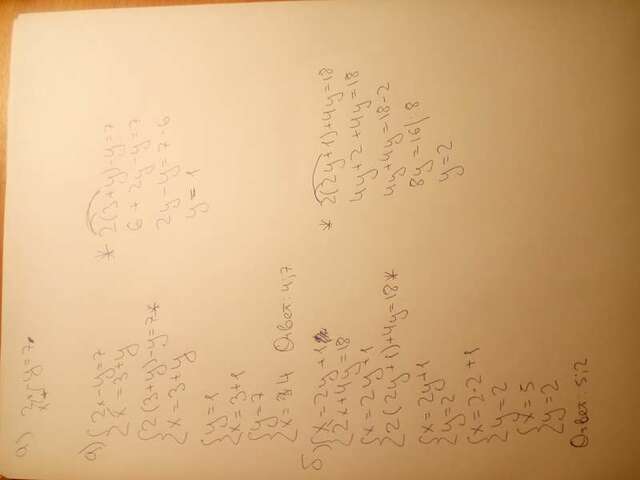 а)
а) { 2x-y=7
{ x=3+y
{ 2(3+y)-y=7*
{ x=3+y
{ y=1
{ x=3+1
{ y=7
{ x=4 Ответ: 4;7
* 2(3+y)-y=7
6+2y-y=7
2y-y=7-6
y=1
б) { x=2y+1
{ 2x+4y=18
{ x=2y+1
{ 2(2y+1)+4y=18*
{ x=2y+1
{ y=2
{ x=2·2+1
{ y=2
{ x=5
{ y=2
Ответ: 5;2
* 2(2y+1)+4y=18
4y+2+4y=18
4y+4y=18-2
8y=16|:8
y=2